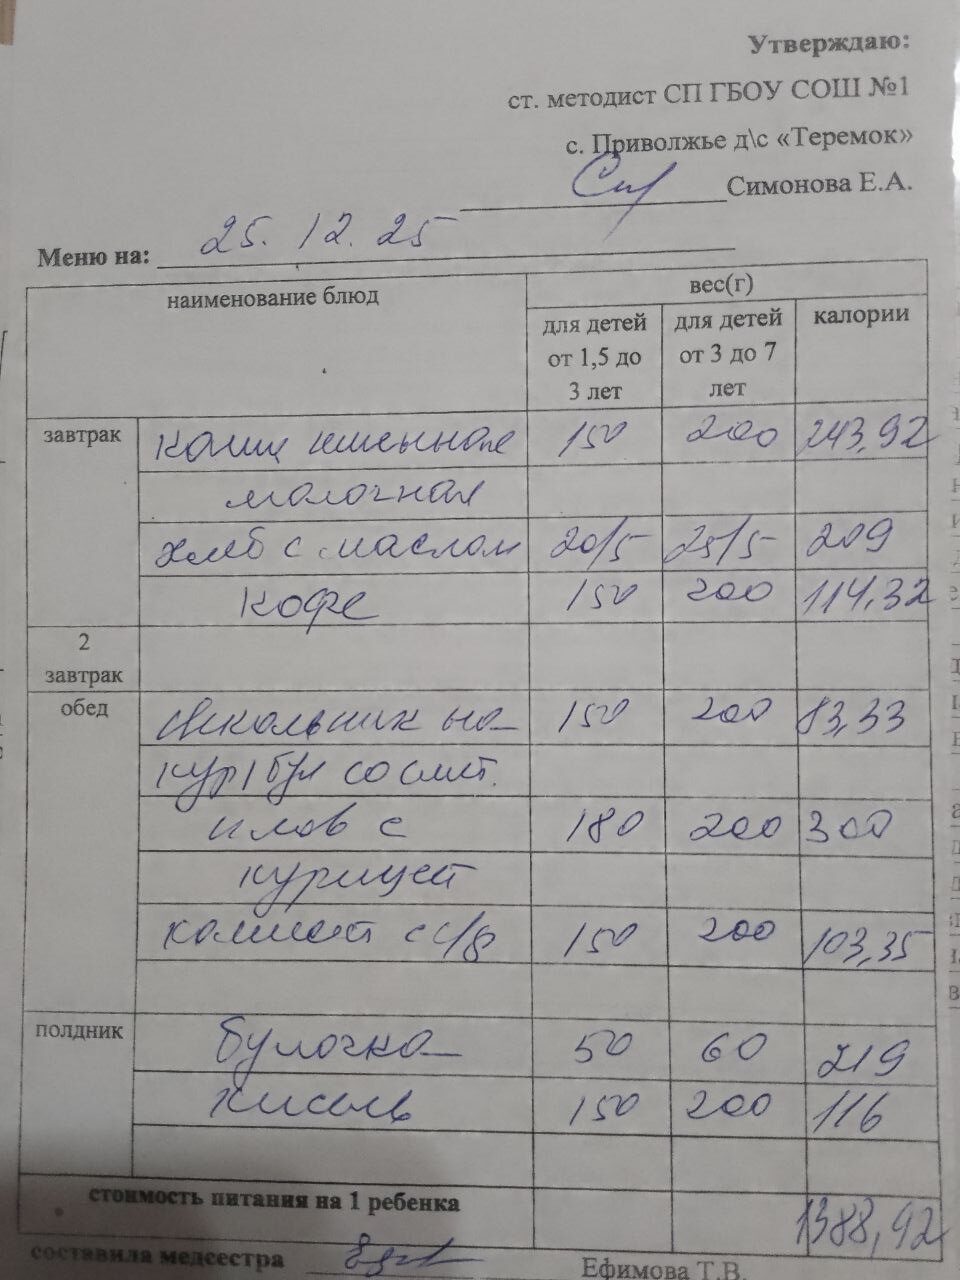 Утверждаю:
ст. методист СП ГБОУ СОШ №1
с. Приволжье д\с «Теремок»
Симонова Е.А.
Меню на: 25.12.25
наименование блюд вес(г)
для детей от 1,5 до 3 лет для детей от 3 до 7 лет калории
завтрак каша пшенная 150 200 243,92
молочная
хлеб с маслом 20/5 25/5 209
кофе 150 200 114,32
2 завтрак
обед свекольник на 150 200 83,33
кур/бул со смет.
плов с 180 200 300
курицей
компот с с/ф 150 200 103,35
полдник булочка 50 60 219
кисель 150 200 116
стоимость питания на 1 ребенка 1388,92
составила медсестра Ефимова Т.В.